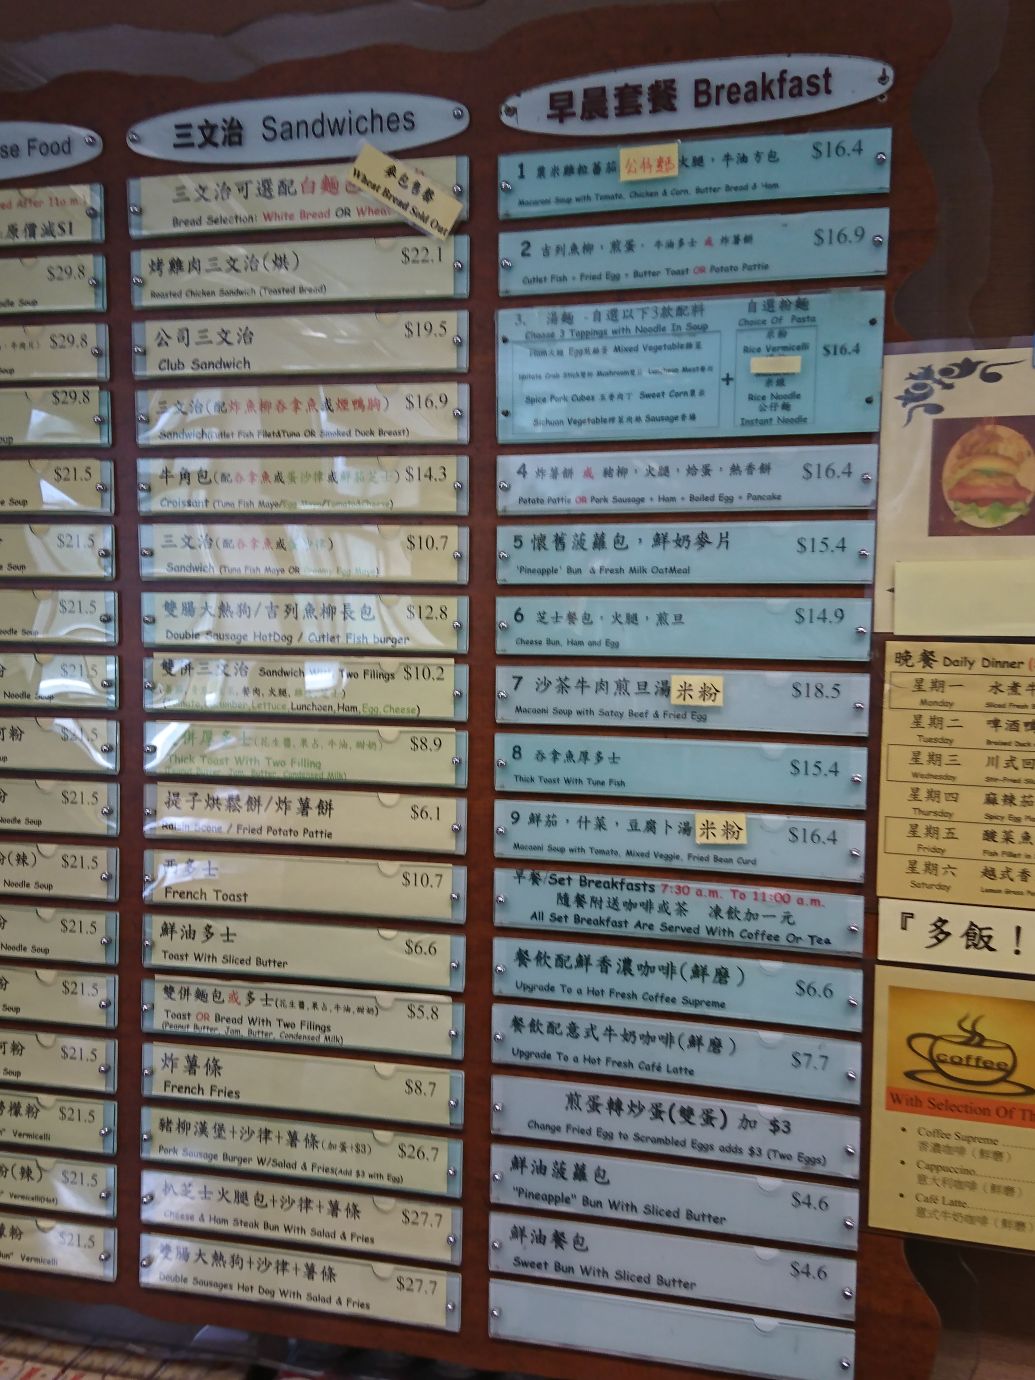 se Food
ed After 11a.m.
原價減$1
$29.8
Noodle Soup
$29.8
$29.8
Soup
$21.5
e Soup
$21.5
e Soup
$21.5
$21.5
Noodle Soup
$21.5
$21.5
Noodle Soup
$21.5
Noodle Soup
$21.5
Noodle Soup
$21.5
Soup
$21.5
Soup
檬粉 $21.5
Vermicelli
(辣) $21.5
$21.5
Vermicelli
三文治 Sandwiches
三文治可選配白麵包
Bread Selection: White Bread OR Wheat
麥包售罄
Wheat Bread Sold Out
烤雞肉三文治(烘) $22.1
Roasted Chicken Sandwich (Toasted Bread)
公司三文治 $19.5
Club Sandwich
三文治(配炸魚柳吞拿魚或煙鴨胸) $16.9
Sandwich(Cutlet Fish Filet&Tuna OR Smoked Duck Breast)
牛角包(配吞拿魚或蛋沙律或鮮茄芝士) $14.3
Croissant (Tuna Fish Mayo/Egg Mayo/Tomato&Cheese)
三文治(配吞拿魚或蛋沙律) $10.7
Sandwich (Tuna Fish Mayo OR Creamy Egg Mayo)
雙腸大熱狗/吉列魚柳長包 $12.8
Double Sausage HotDog / Cutlet Fish burger
雙併三文治 Sandwich With Two Filings $10.2
餐肉,火腿,
(Tomato,Cucumber,Lettuce,Lunchoen,Ham,Egg,Cheese)
雙併厚多士(花生醬,果占,牛油,甜奶) $8.9
Thick Toast With Two Filling
(Peanut Butter, Jam, Butter, Condensed Milk)
提子烘鬆餅/炸薯餅 $6.1
Raisin Scone / Fried Potato Pattie
西多士 $10.7
French Toast
鮮油多士 $6.6
Toast With Sliced Butter
雙併麵包或多士(花生醬,果占,牛油,甜奶) $5.8
Toast OR Bread With Two Filings
(Peanut Butter, Jam, Butter, Condensed Milk)
炸薯條 $8.7
French Fries
豬柳漢堡+沙律+薯條(加蛋+$3) $26.7
Pork Sausage Burger W/Salad & Fries(Add $3 with Egg)
扒芝士火腿包+沙律+薯條 $27.7
Cheese & Ham Steak Bun With Salad & Fries
雙腸大熱狗+沙律+薯條 $27.7
Double Sausages Hot Dog With Salad & Fries
早晨套餐 Breakfast
1 粟米雞粒蕃茄公仔麵火腿,牛油方包 $16.4
Macaroni Soup with Tomato, Chicken & Corn, Butter Bread & Ham
2 吉列魚柳,煎蛋,牛油多士 或 炸薯餅 $16.9
Cutlet Fish + Fried Egg + Butter Toast OR Potato Pattie
3. 湯麵 - 自選以下3款配料
Choose 3 Toppings with Noodle In Soup
Ham火腿 Egg煎雞蛋 Mixed Vegetable雜菜
Imitate Crab Stick Mushroom Luncheon Meat
Spice Pork Cubes 五香肉丁 Sweet Corn粟米
Sichuan Vegetable榨菜肉絲 Sausage香腸
+
自選粉麵
Choice Of Pasta
米粉
Rice Vermicelli
米線
Rice Noodle
公仔麵
Instant Noodle
$16.4
4 炸薯餅 或 豬柳,火腿,烚蛋,熱香餅 $16.4
Potato Pattie OR Pork Sausage + Ham + Boiled Egg + Pancake
5 懷舊菠蘿包,鮮奶麥片 $15.4
'Pineapple' Bun & Fresh Milk OatMeal
6 芝士餐包,火腿,煎旦 $14.9
Cheese Bun, Ham and Egg
7 沙茶牛肉煎旦湯米粉 $18.5
Macaoni Soup with Satay Beef & Fried Egg
8 吞拿魚厚多士 $15.4
Thick Toast With Tune Fish
9 鮮茄,什菜,豆腐卜湯米粉 $16.4
Macaoni Soup with Tomato, Mixed Veggie, Fried Bean Curd
早餐/Set Breakfasts 7:30 a.m. To 11:00 a.m.
隨餐附送咖啡或茶 凍飲加一元
All Set Breakfast Are Served With Coffee Or Tea
餐飲配鮮香濃咖啡(鮮磨) $6.6
Upgrade To a Hot Fresh Coffee Supreme
餐飲配意式牛奶咖啡(鮮磨) $7.7
Upgrade To a Hot Fresh Café Latte
煎蛋轉炒蛋(雙蛋) 加 $3
Change Fried Egg to Scrambled Eggs adds $3 (Two Eggs)
鮮油菠蘿包 $4.6
"Pineapple" Bun With Sliced Butter
鮮油餐包 $4.6
Sweet Bun With Sliced Butter
晚餐 Daily Dinner
星期一 水煮牛
Monday Sliced Fresh B
星期二 啤酒鴨
Tuesday Braised Duck
星期三 川式回
Wednesday Stir-Fried
星期四 麻辣茄
Thursday Spicy Egg Pla
星期五 酸菜魚
Friday Fish Fillet in
星期六 越式香
Saturday Lemon Grass
『多飯!
coffee
With Selection Of Th
• Coffee Supreme
香濃咖啡(鮮磨)
• Cappuccino
意大利咖啡(鮮磨)
• Café Latte
意式牛奶咖啡(鮮磨